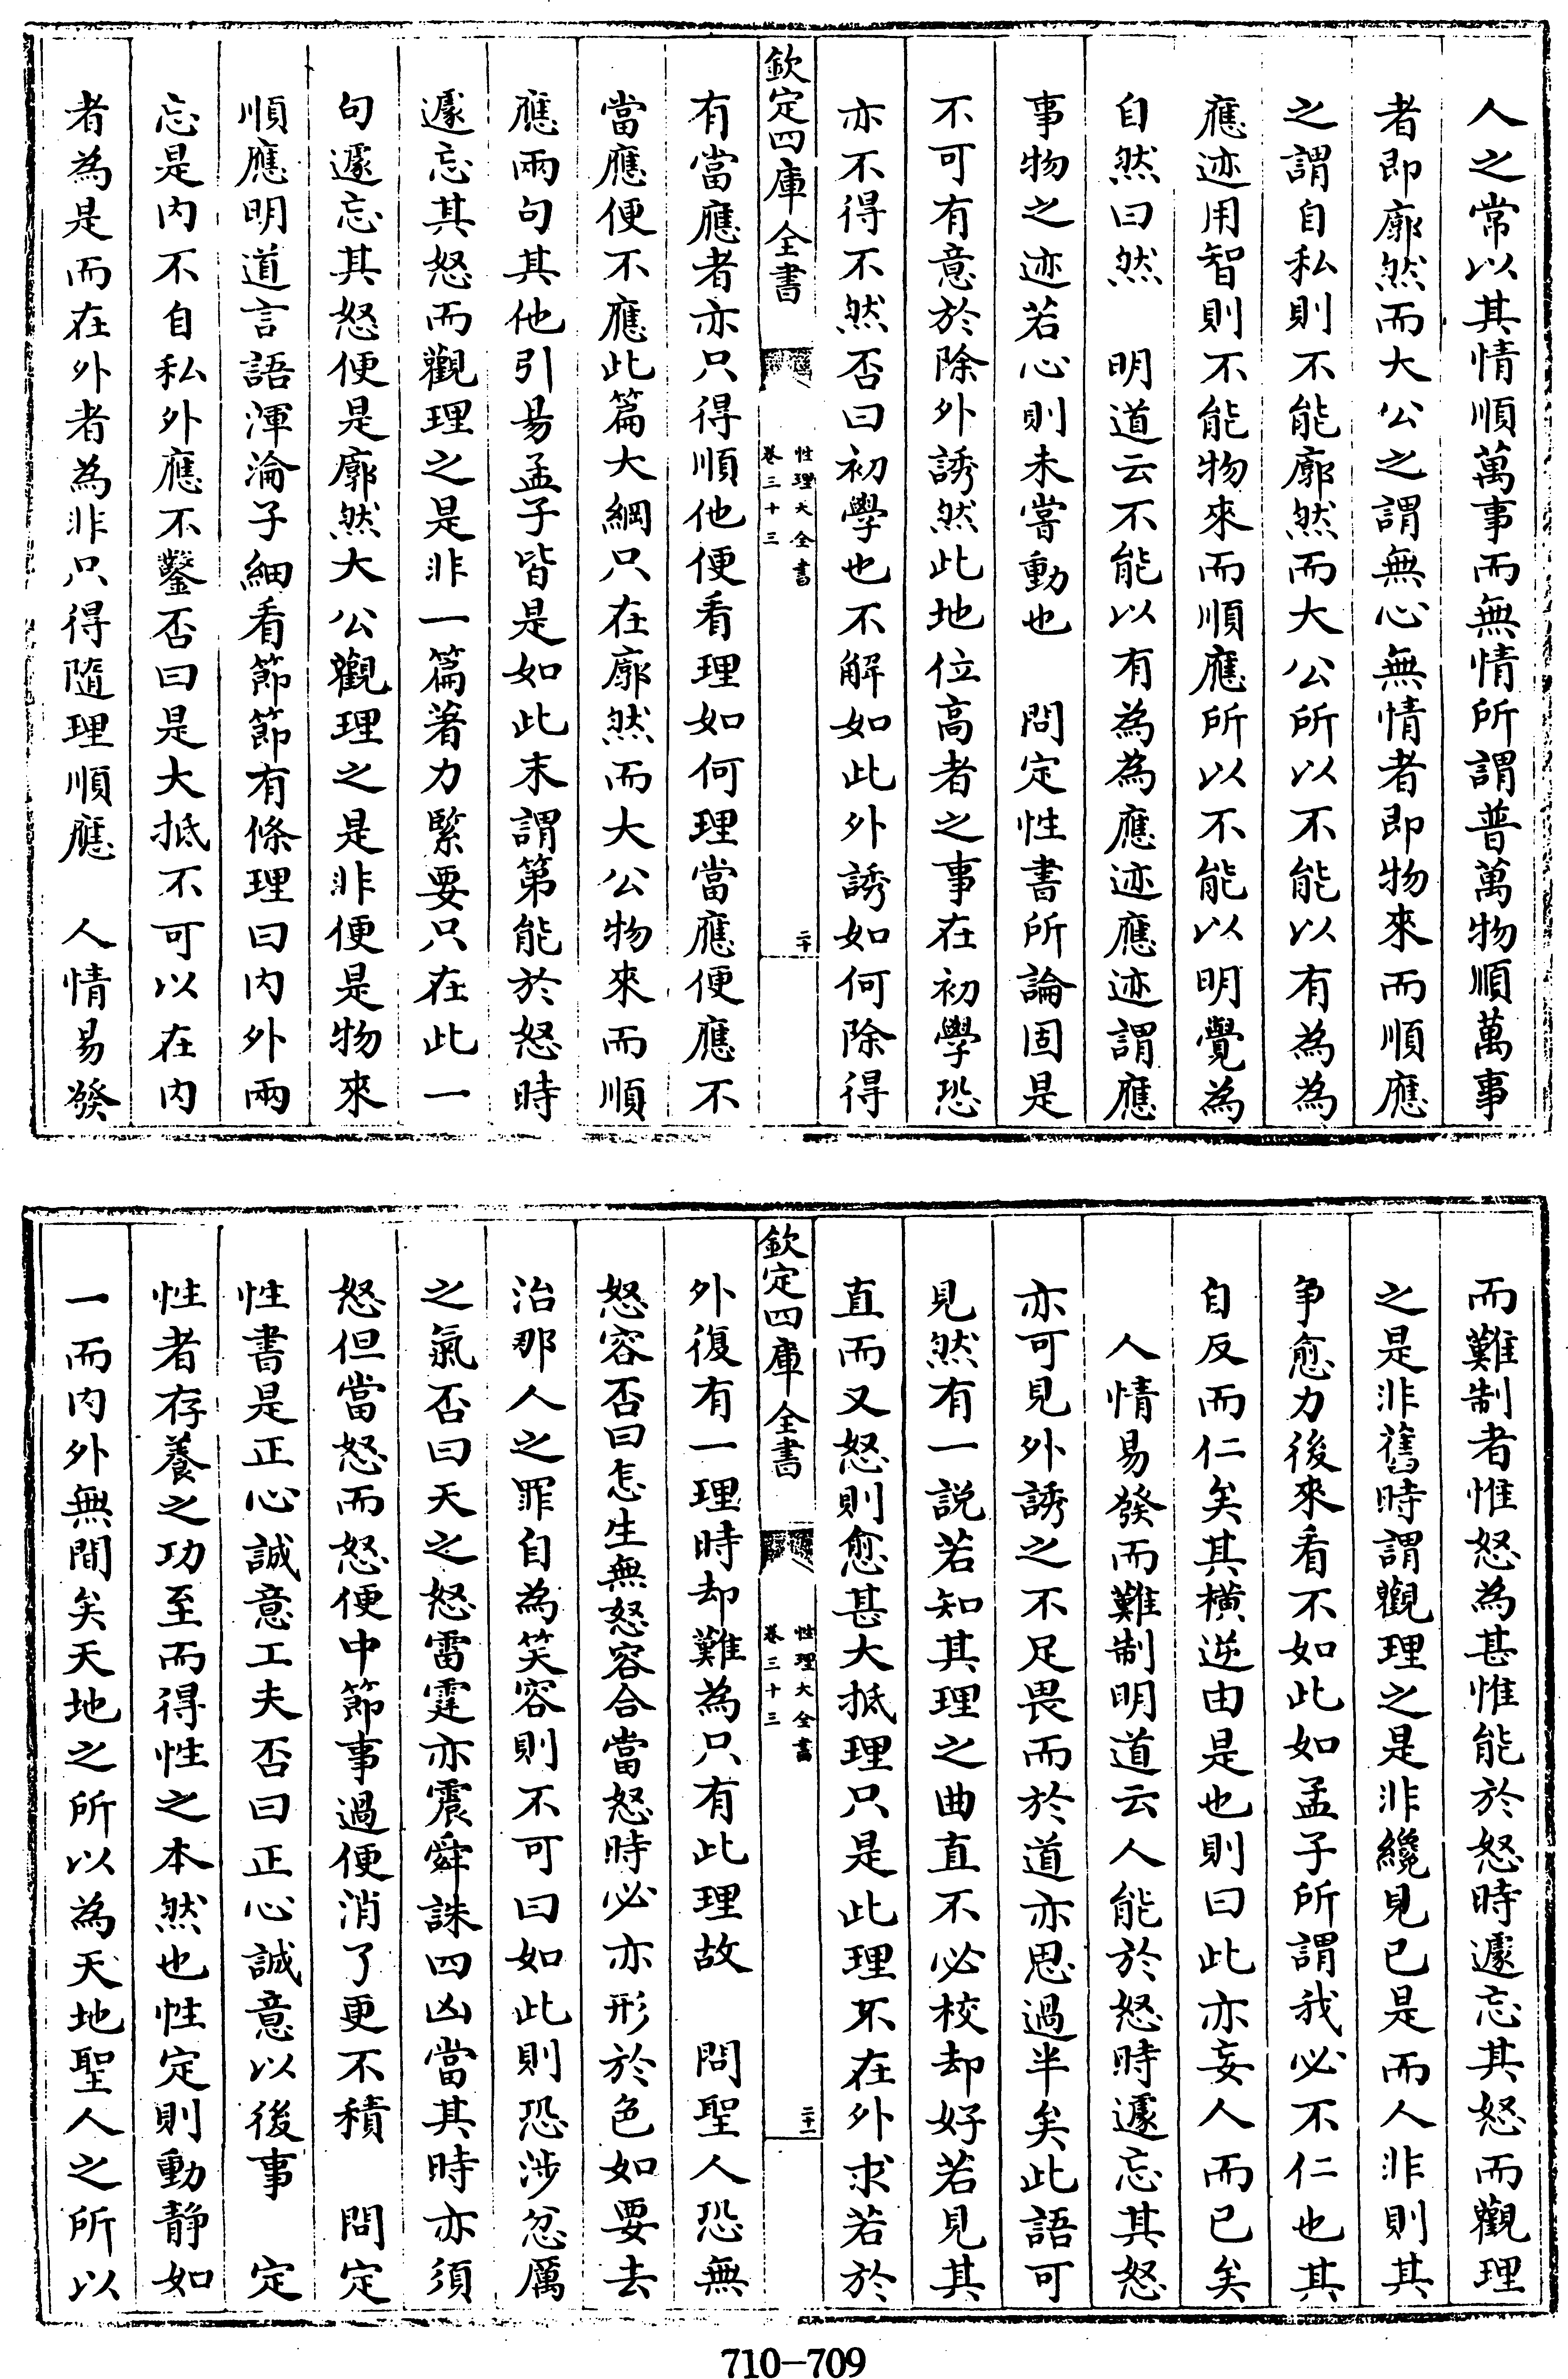 人之常以其情順萬事而無情所謂普萬物順萬事
者即廓然而大公之謂無心無情者即物來而順應
之謂自私則不能廓然而大公所以不能以有為為
應迹用智則不能物來而順應所以不能以明覺為
自然曰然　明道云不能以有為為應迹應迹謂應
事物之迹若心則未嘗動也　問定性書所論固是
不可有意於除外誘然此地位高者之事在初學恐
亦不得不然否曰初學也不解如此外誘如何除得
欽定四庫全書
性理大全書
卷三十三
二十
有當應者亦只得順他便看理如何理當應便應不
當應便不應此篇大綱只在廓然而大公物來而順
應兩句其他引易孟子皆是如此末謂第能於怒時
遽忘其怒而觀理之是非一篇著力緊要只在此一
句遽忘其怒便是廓然大公觀理之是非便是物來
順應明道言語渾淪子細看節節有條理曰內外兩
忘是內不自私外應不鑿否曰是大抵不可以在內
者為是而在外者為非只得隨理順應　人情易發
而難制者惟怒為甚惟能於怒時遽忘其怒而觀理
之是非舊時謂觀理之是非纔見已是而人非則其
爭愈力後來看不如此如孟子所謂我必不仁也其
自反而仁矣其橫逆由是也則曰此亦妄人而已矣
人情易發而難制明道云人能於怒時遽忘其怒
亦可見外誘之不足畏而於道亦思過半矣此語可
見然有一說若知其理之曲直不必校却好若見其
直而又怒則愈甚大抵理只是此理不在外求若於
欽定四庫全書
性理大全書
卷三十三
二十一
外復有一理時却難為只有此理故　問聖人恐無
怒容否曰怎生無怒容合當怒時必亦形於色如要去
治那人之罪自為笑容則不可曰如此則恐涉忿厲
之氣否曰天之怒雷霆亦震舜誅四凶當其時亦須
怒但當怒而怒便中節事過便消了更不積　問定
性書是正心誠意工夫否曰正心誠意以後事　定
性者存養之功至而得性之本然也性定則動靜如
一而內外無間矣天地之所以為天地聖人之所以
710-709